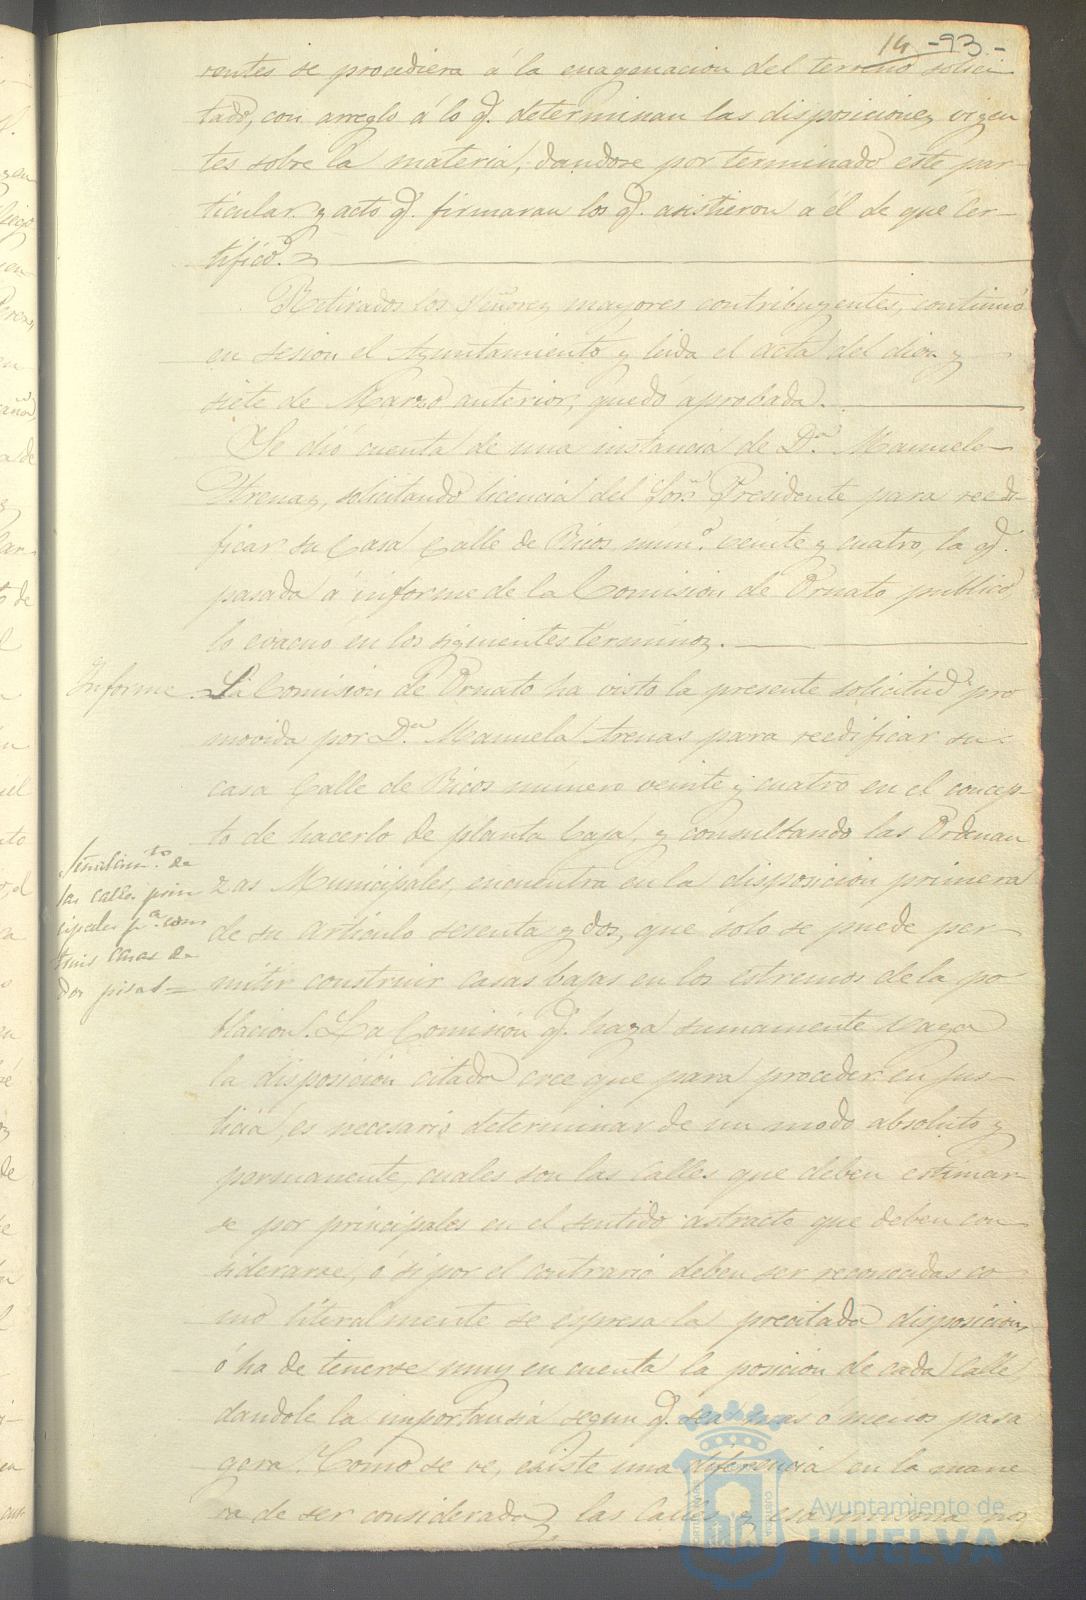 14 -93-
rentes se procediera á la enagenacion del terreno solici
tado, con arreglo á lo q.e determinan las disposiciones vigen
tes sobre la materia, dandose por terminado este par-
ticular y acto q.e firmaran los q.e asistieron á él de que cer-
tifico.
Retirados los Señores mayores contribuyentes, continuó
en sesion el Ayuntamiento y leida el acta del diez y
siete de Marzo anterior, quedó aprobada.
Se dió cuenta de una instancia de D.a Manuela
Arenas, solicitando licencia del Sor. Presidente para reedi
ficar su Casa Calle de Ricos num.o veinte y cuatro, la q.e
pasada á informe de la Comision de Ornato publico,
lo evacuo en los siguientes terminos.
Informe. La Comision de Ornato ha visto la presente solicitud pro
movida por D.a Manuela Arenas para reedificar su
casa Calle de Ricos número veinte y cuatro en el concep-
to de hacerlo de planta baja, y consultando las Ordenan
zas Municipales, encuentra en la disposicion primera
de su articulo sesenta y dos, que solo se puede per-
mitir construir casas bajas en los estremos de la po-
blacion. La Comisión q.e haya sumamente vaga
la disposicion citada cree que para proceder en jus-
ticia, es necesario determinar de un modo absoluto y
permanente, cuales son las Calles que deben estimar-
se por principales en el sentido astracto que deben con
siderarse, ó si por el contrario deben ser reconocidas co-
mo literalmente se espresa la precitada disposicion,
ó ha de tenerse muy en cuenta la posicion de cada Calle,
dandole la importansia segun q.e sea mas ó menos pasa
gera. Como se ve, existe una diferencia en la mane
ra de ser consideradas las Calles, y esa misma no
Señalam.to de
las calles prin
cipales p.a cons
truir casas de
dos pisos=
Ayuntamiento de
HUELVA